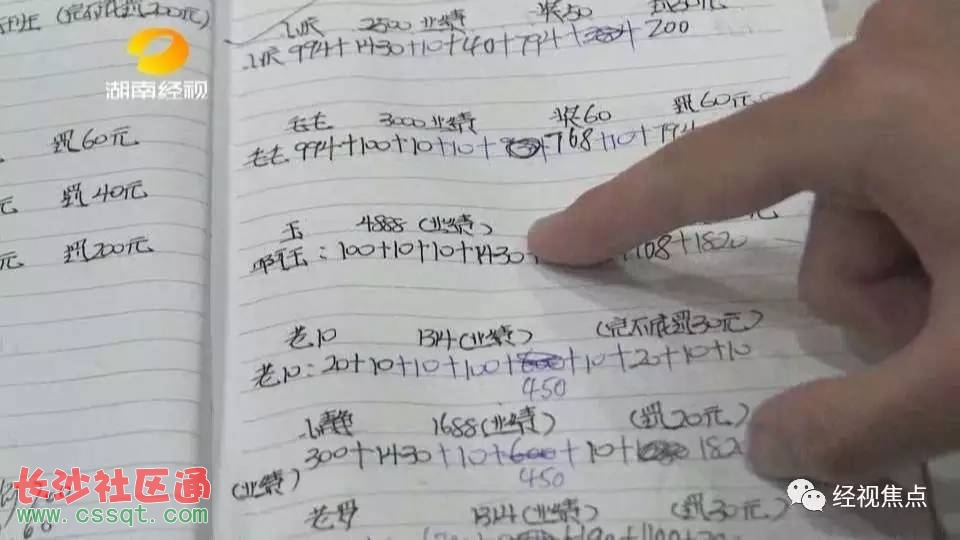 (完不成罚200元)
罚60元
元 罚40元
元 罚200元
2500业绩 奖50
994+1430+10+40+794+ 200
毛毛 3000业绩 奖60 罚60元
毛毛 994+100+10+10+ +768+10+794
玉 4888(业绩)
玉:100+10+10+1430 108+1820
老10 1314(业绩) (完不成罚30元)
老10:20+10+10+100+ +10+20+10+10
450
小静 1688(业绩) (罚20元)
300+1430+10+600+10+ 182
(业绩) 450
老罗 1314(业绩) (罚30元)
湖南经视
长沙社区通
www.cssqt.com
经视焦点